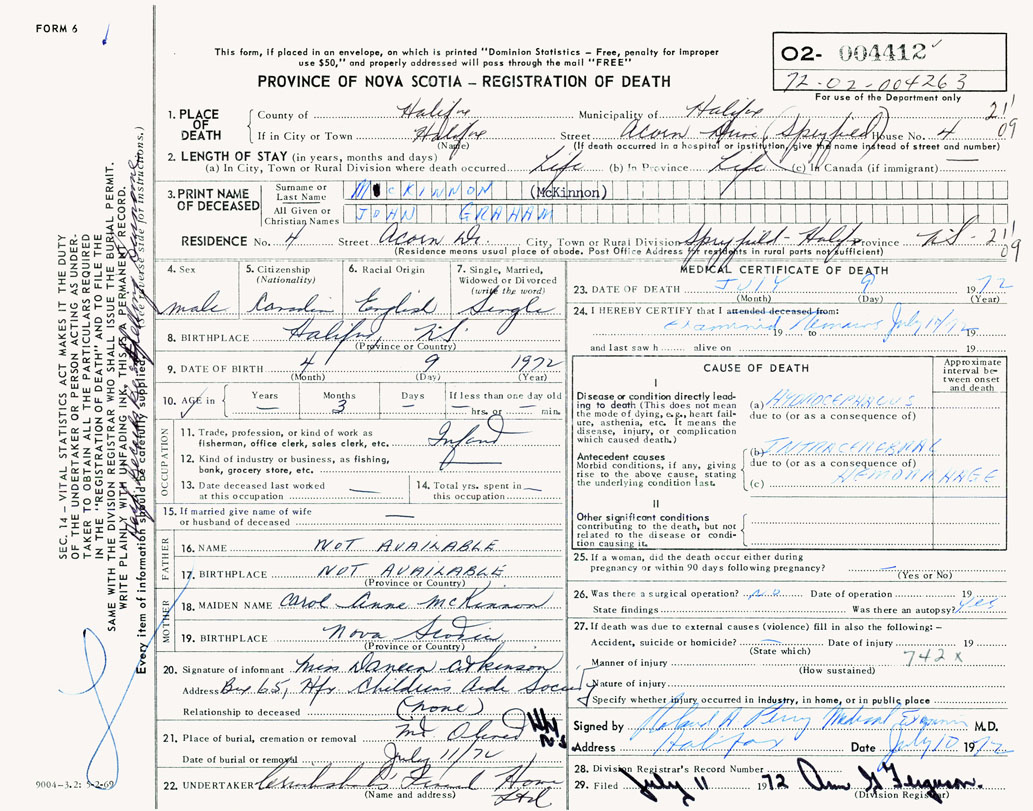 FORM 6
This form, if placed in an envelope, on which is printed "Dominion Statistics – Free, penalty for improper
use $50," and properly addressed will pass through the mail "FREE"
PROVINCE OF NOVA SCOTIA – REGISTRATION OF DEATH
02- 004412
72-02-004263
For use of the Department only
1. PLACE OF DEATH
County of Halifax Municipality of Halifax 21
If in City or Town Halifax Street Acorn Drive (Spryfield) House No. 4 09
(Name) (If death occurred in a hospital or institution, give the name instead of street and number)
2. LENGTH OF STAY (in years, months and days)
(a) In City, Town or Rural Division where death occurred Life (b) In Province Life (c) In Canada (if immigrant) —
3. PRINT NAME OF DECEASED
Surname or Last Name McKINNON (McKinnon)
All Given or Christian Names JOHN GRAHAM
RESIDENCE No. 4 Street Acorn Dr. City, Town or Rural Division Spryfield - Halifax Province NS - 21
(Residence means usual place of abode. Post Office Address for residents in rural parts not sufficient) 09
4. Sex
male
5. Citizenship
(Nationality)
6. Racial Origin
English
7. Single, Married,
Widowed or Divorced
(write the word)
Single
8. BIRTHPLACE Halifax, NS
(Province or Country)
9. DATE OF BIRTH 4 9 1972
(Month) (Day) (Year)
10. AGE in Years — Months 3 Days — If less than one day old
— hrs. or — min.
OCCUPATION
11. Trade, profession, or kind of work as
fisherman, office clerk, sales clerk, etc. Infant
12. Kind of industry or business, as fishing,
bank, grocery store, etc. —
13. Date deceased last worked
at this occupation —
14. Total yrs. spent in
this occupation —
15. If married give name of wife
or husband of deceased —
FATHER
16. NAME NOT AVAILABLE
17. BIRTHPLACE NOT AVAILABLE
(Province or Country)
MOTHER
18. MAIDEN NAME Carol Anne McKinnon
19. BIRTHPLACE Nova Scotia
(Province or Country)
20. Signature of informant Miss Atkinson
Address Box 65, Hfx Children's Aide Society
Relationship to deceased (none)
21. Place of burial, cremation or removal Mt Olivet Hfx NS
Date of burial or removal July 11/72
22. UNDERTAKER Funeral Home Ltd
(Name and address)
MEDICAL CERTIFICATE OF DEATH
23. DATE OF DEATH JULY 9 1972
(Month) (Day) (Year)
24. I HEREBY CERTIFY that I attended deceased from:
examined remains July 10/72 19 19
and last saw h alive on 19
CAUSE OF DEATH
Approximate interval between onset and death
I
Disease or condition directly leading to death (This does not mean the mode of dying, e.g., heart failure, asthenia, etc. It means the disease, injury, or complication which caused death.)
(a) HYDROCEPHALUS
due to (or as a consequence of)
Antecedent causes
Morbid conditions, if any, giving rise to the above cause, stating the underlying condition last.
(b) INTRACEREBRAL
due to (or as a consequence of)
(c) HEMORRHAGE
II
Other significant conditions
contributing to the death, but not related to the disease or condition causing it.
25. If a woman, did the death occur either during
pregnancy or within 90 days following pregnancy? —
(Yes or No)
26. Was there a surgical operation? NO Date of operation 19
State findings Was there an autopsy? Yes
27. If death was due to external causes (violence) fill in also the following:–
Accident, suicide or homicide? — Date of injury 19
(State which) 742 x
Manner of injury
(How sustained)
Nature of injury
Specify whether injury occurred in industry, in home, or in public place
Signed by Roland H Perry Medical Examiner M.D.
Address Halifax Date July 10 1972
28. Division Registrar's Record Number
29. Filed July 11 1972 Ann G Ferguson.
(Division Registrar)
SEC. 14 – VITAL STATISTICS ACT MAKES IT THE DUTY
OF THE UNDERTAKER OR PERSON ACTING AS UNDER-
TAKER TO OBTAIN ALL THE PARTICULARS REQUIRED
IN THE "REGISTRATION OF DEATH" AND TO FILE THE
SAME WITH THE DIVISION REGISTRAR WHO SHALL ISSUE THE BURIAL PERMIT.
WRITE PLAINLY WITH UNFADING INK, THIS IS A PERMANENT RECORD.
Every item of information should be carefully supplied. (See reverse side for instructions.)
9004–3.2: 5-2-69